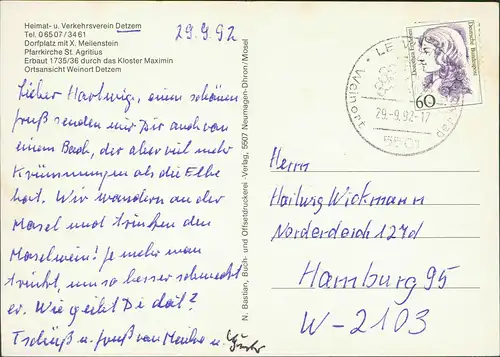 Heimat- u. Verkehrsverein Detzem
Tel. 06507/3461
Dorfplatz mit X. Meilenstein
Pfarrkirche St. Agritius
Erbaut 1735/36 durch das Kloster Maximin
Ortsansicht Weinort Detzem
29.9.92
Lieber Hartwig, einen schönen
Gruß senden wir Dir auch von
einem Bach, der aber viel mehr
Krümmungen als die Elbe
hat. Wir wandern an der
Mosel und trinken den
Moselwein! Je mehr man
trinkt, um so besser schmeckt
er. Wie geht Di dat?
Tschüß u. Gruß von Meike u.
N. Bastian, Buch- und Offsetdruckerei Verlag, 5507 Neumagen-Dhron/Mosel
Weinort
29.-9.92-17
5501
60
Deutsche Bundespost
Herrn
Hartwig Wickmann
Norderdeich 127d
Hamburg 95
W-2103